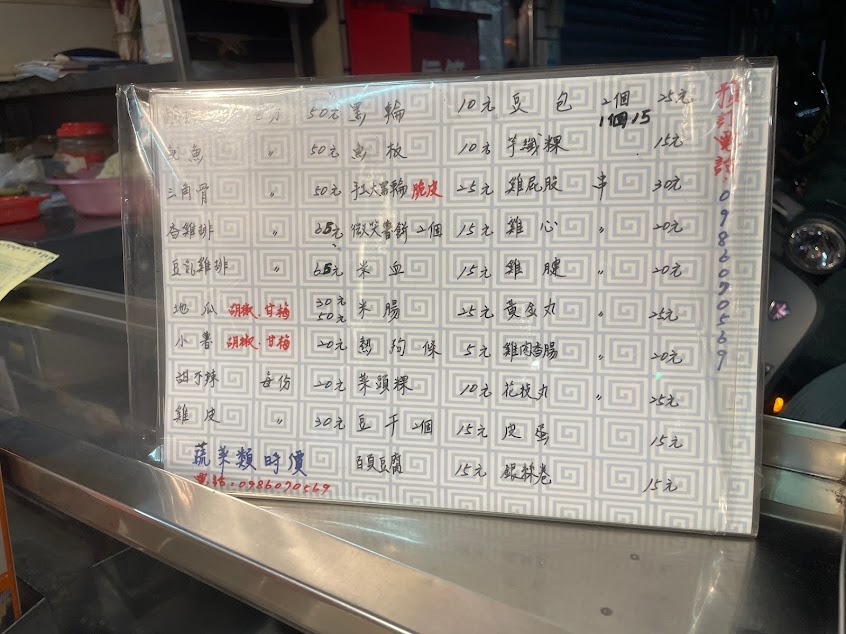 50元 黑輪 10元 豆包 2個 25元
1個15
魷魚 〃 50元 魚板 10元 芋纖粿 15元
三角骨 〃 50元 手工大黑輪 脆皮 25元 雞屁股 串 30元
香雞排 〃 65元 微笑薯餅 2個 15元 雞心 〃 20元
豆乳雞排 〃 65元 米血 15元 雞腱 〃 20元
地瓜 胡椒.甘梅 30元 50元 米腸 25元 黃金丸 〃 25元
小薯 胡椒.甘梅 20元 熱狗條 5元 雞肉香腸 〃 20元
甜不辣 每份 20元 菜頭粿 10元 花枝丸 〃 25元
雞皮 〃 30元 豆干 2個 15元 皮蛋 15元
蔬菜類時價 百頁豆腐 15元 銀絲卷 15元
電話.0986090569
預訂電話 0986090569